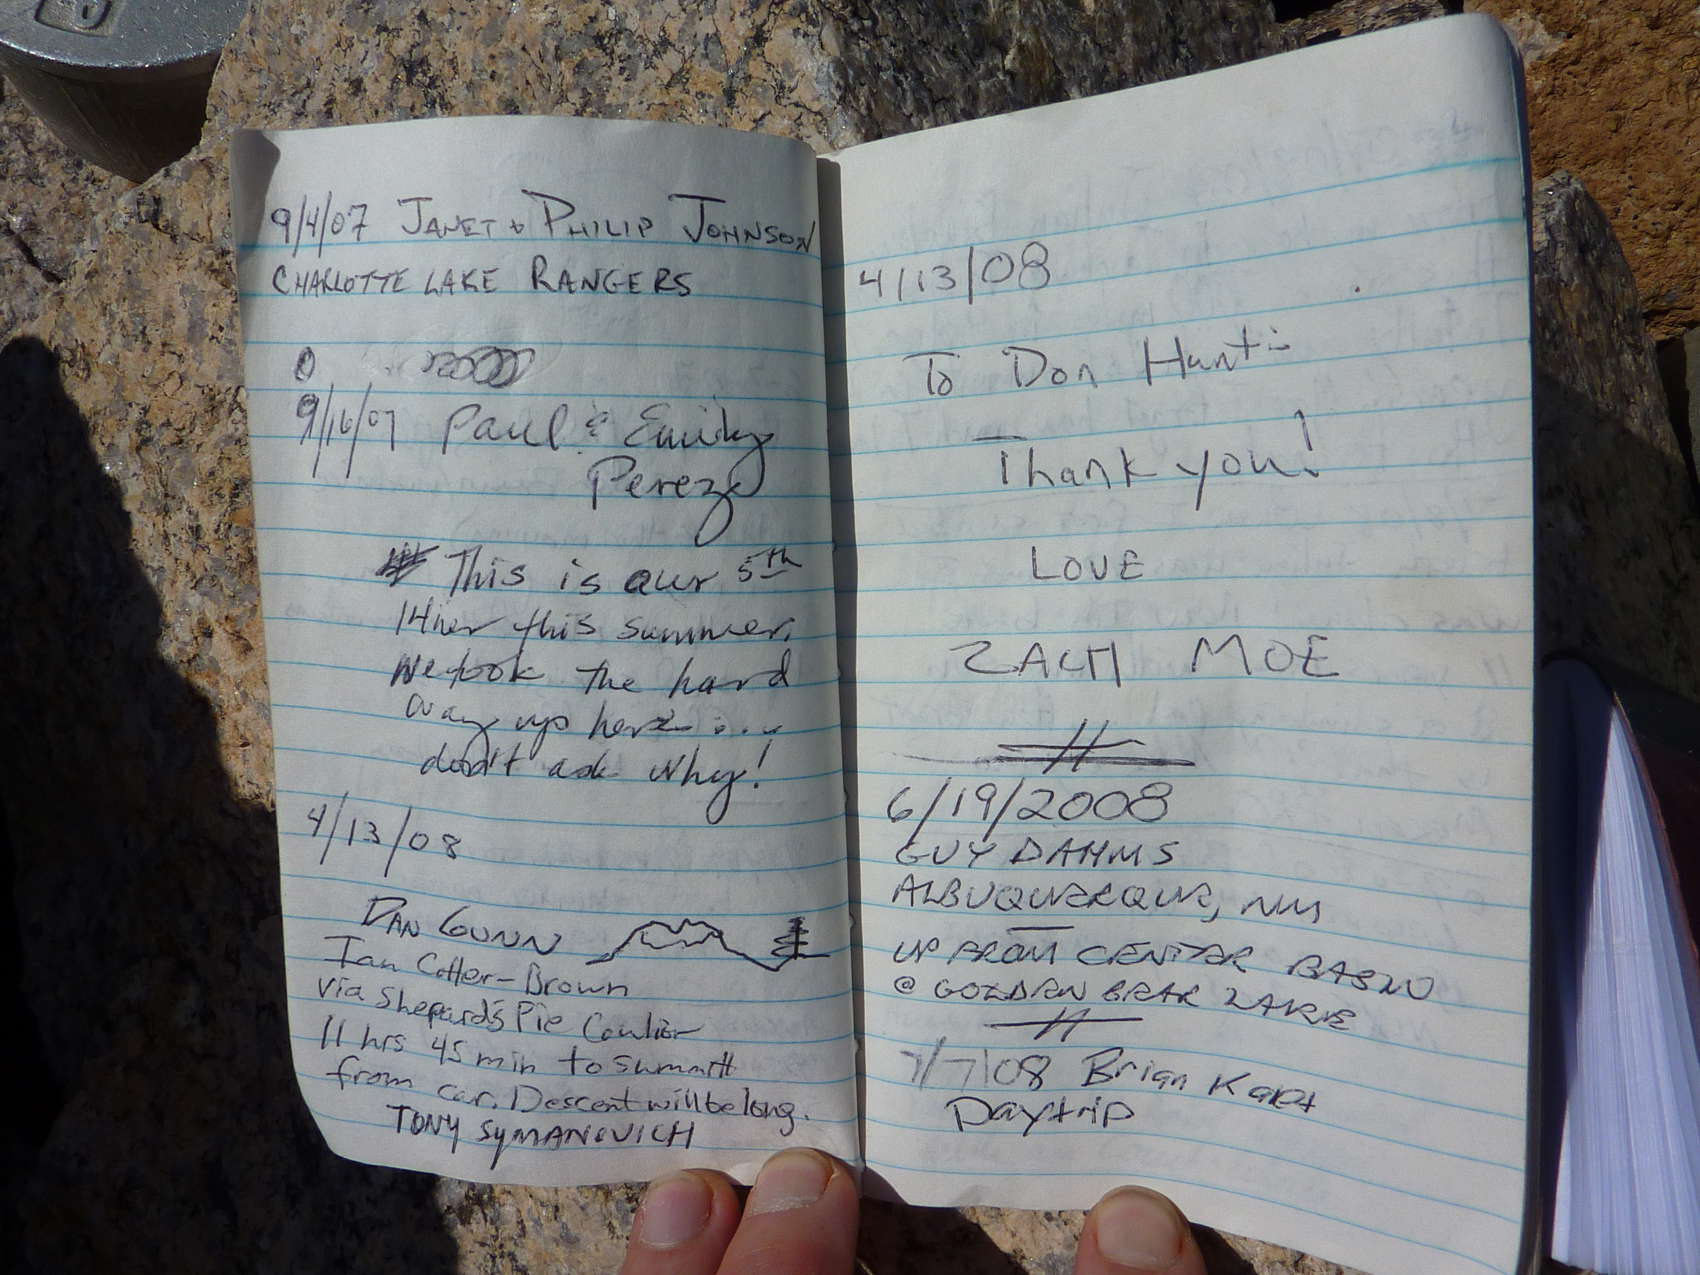 9/4/07 JANET & PHILIP JOHNSON
CHARLOTTE LAKE RANGERS
9/16/07 Paul & Emily
Perez
This is our 5th
14ner this summer.
We took the hard
way up here....
don't ask why!
4/13/08
DAN GUNN
Ian Cotter-Brown
via Shepard's Pie Couloir
11 hrs 45 min to summit
from car. Descent will be long.
TONY SYMANOVICH
4/13/08
To Don Hunt:-
Thank you!
LOVE
ZACH MOE
6/19/2008
GUY DAHMS
ALBUQUERQUE, NM
UP FROM CENTER BASIN
@ GOLDEN BEAR LAKE
7/7/08 Brian
Daytrip